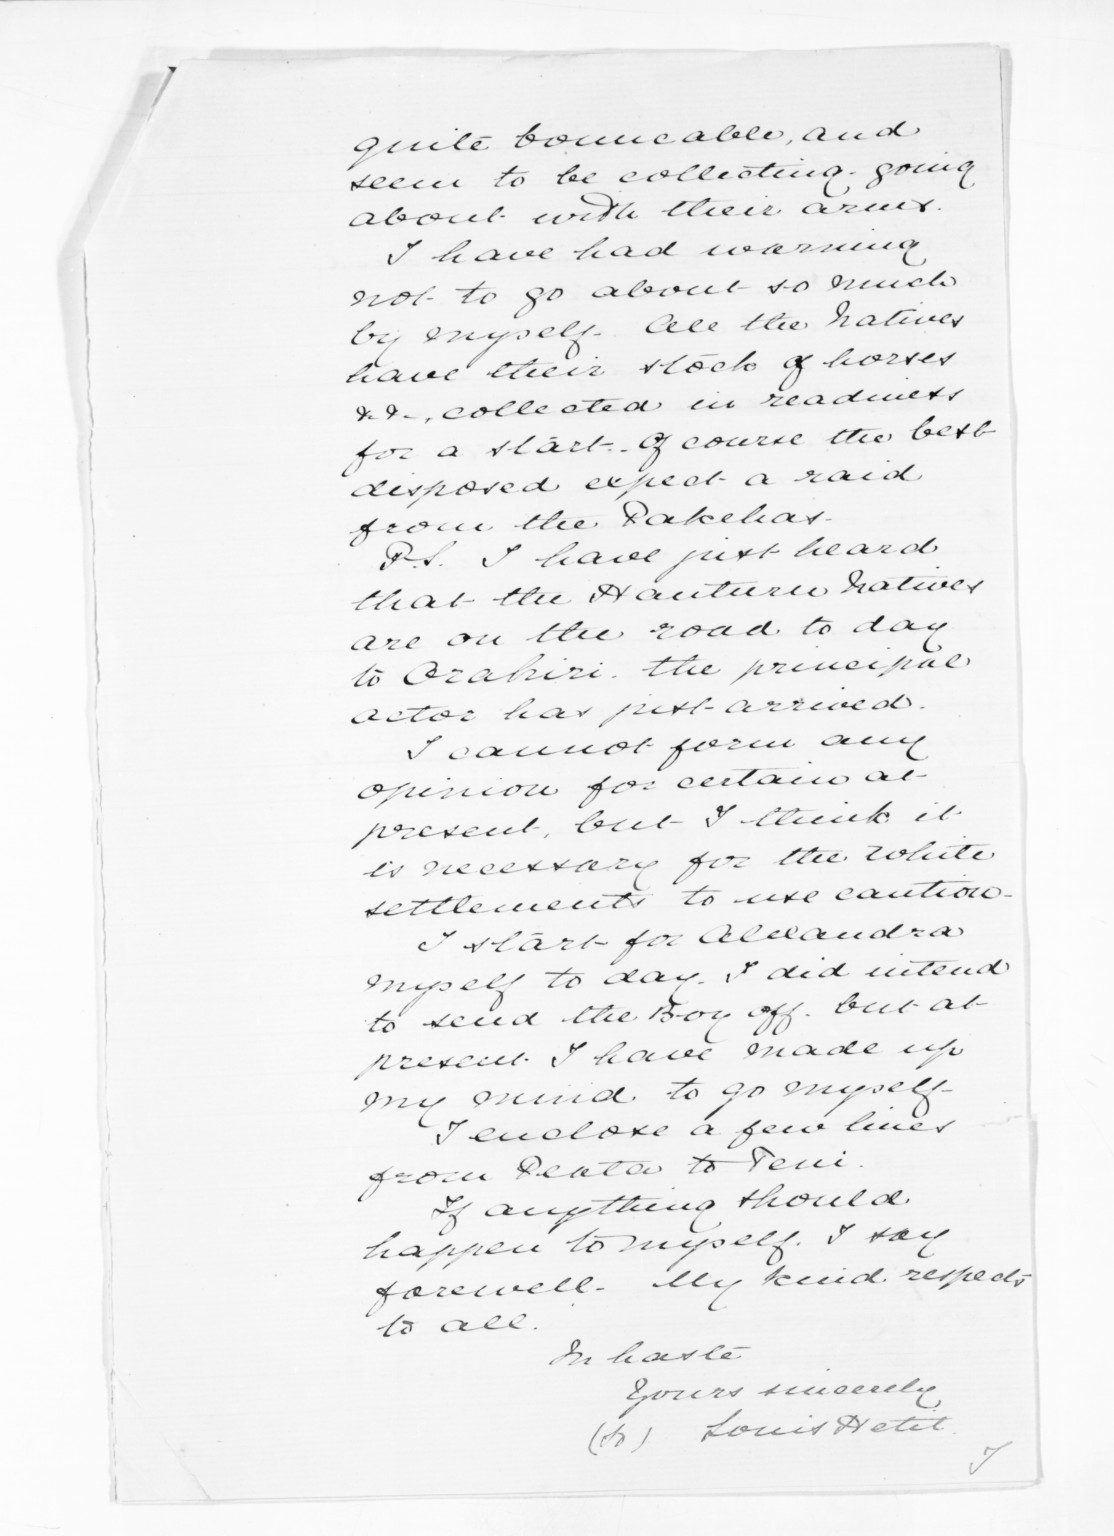 quite bounceable, and
seem to be collecting. going
about with their arms.
I have had warning
not to go about so much
by myself. All the Natives
have their stock of horses
&c., collected in readiness
for a start. Of course the best
disposed expect a raid
from the Pakehas.
P.S. I have just heard
that the Hauturu Natives
are on the road to day
to Orahiri. the principal
actor has just arrived.
I cannot form any
opinion for certain at
present, but I think it
is necessary for the white
settlements to use caution.
I start for Alexandra
myself to day. I did intend
to send the Boy off. but at
present I have made up
my mind to go myself.
I enclose a few lines
from to
If anything should
happen to myself. I say
farewell. My kind respects
to all.
In haste
Yours sincerely
Louis Hetit
I